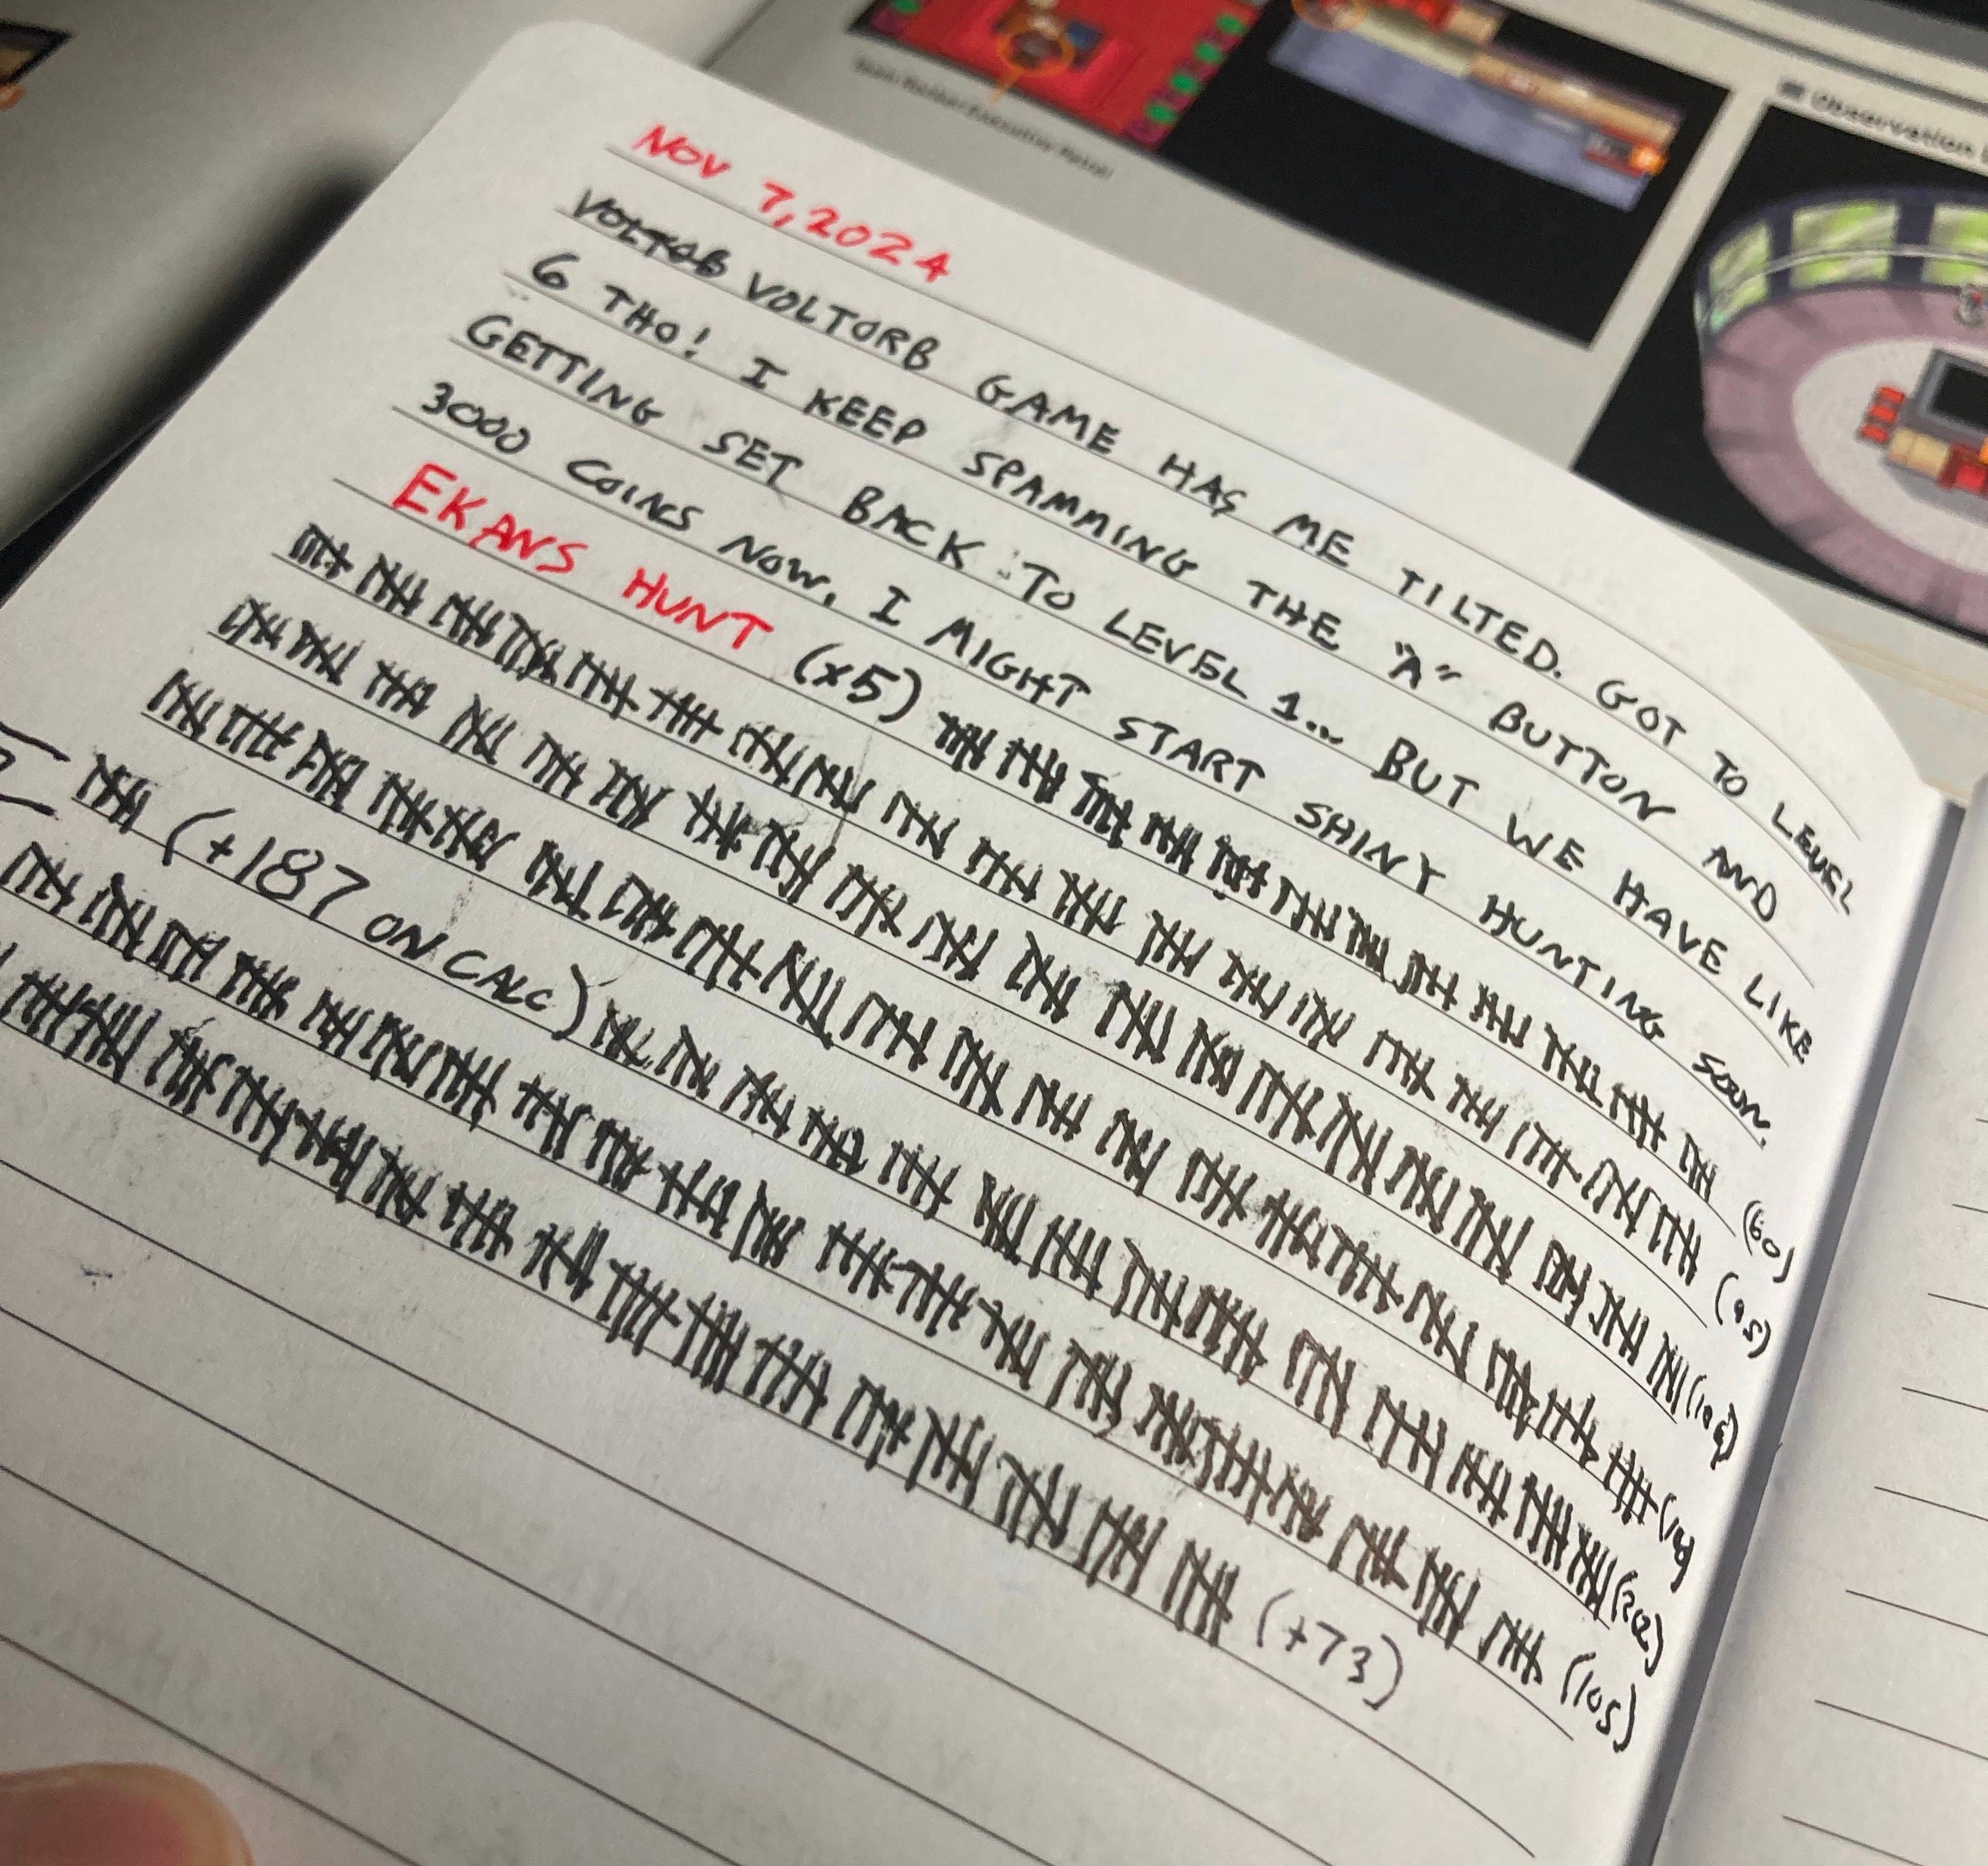 Observation
NOV 7, 2024
VOLTOB VOLTORB GAME HAS ME TILTED. GOT TO LEVEL
6 THO! I KEEP SPAMMING THE "A" BUTTON AND
GETTING SET BACK TO LEVEL 1... BUT WE HAVE LIKE
3000 COINS NOW, I MIGHT START SHINY HUNTING SOON.
EKANS HUNT (x5)
(60)
(95)
(+187 ON CALC)
(105)
(+73)